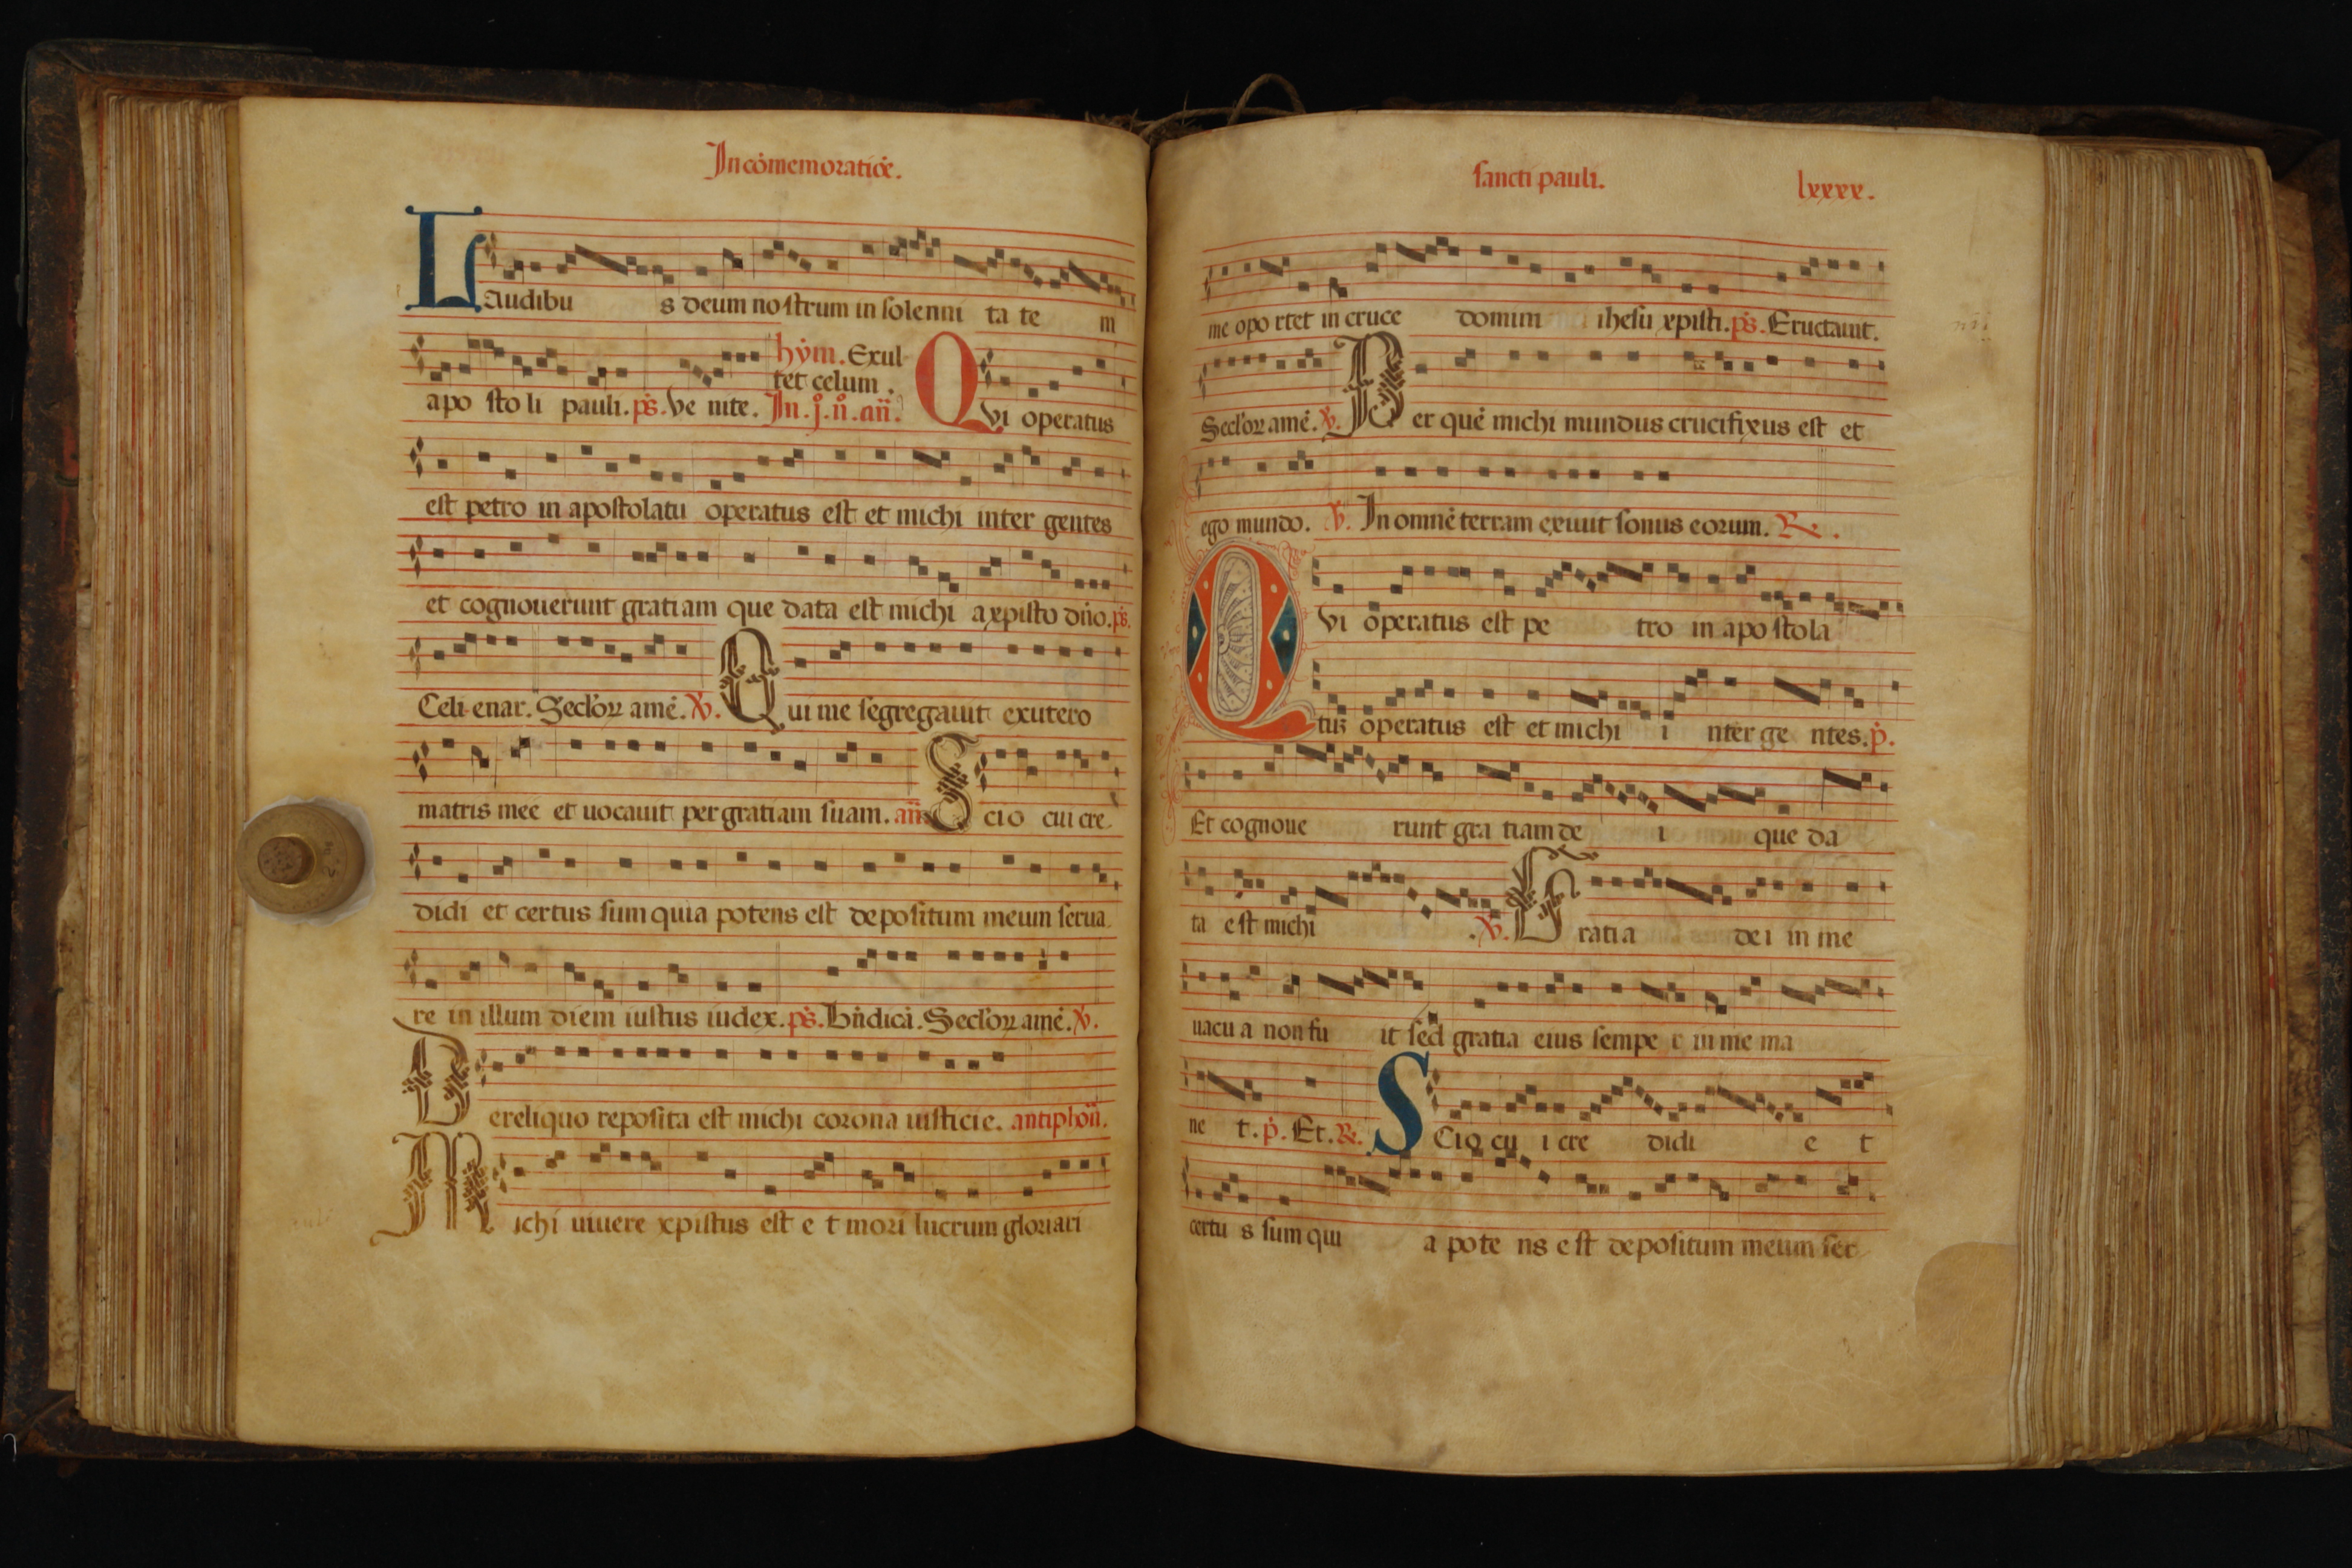 In cōmemoratiōe.
Laudibu s deum no strum in solenni ta te m
hẏm. Exul
tet celum.
apo sto li pauli. ps̄. Ve nite. In. j. n̊. an̄. Qvi operatus
est petro in apostolatu operatus est et michi inter gentes
et cognouerunt gratiam que data est michi a xpisto dn̄o. ps̄.
Celi enar. Seclor̄ꝝ amē. ℣. Qui me segregauit ex utero
matris mee et uocauit per gratiam suam. an̄. Scio cui cre
didi et certus sum quia potens est depositum meum serua
re in illum diem iustus iudex. ps̄. Bn̄dicā. Seclor̄ꝝ amē. ℣.
De reliquo reposita est michi corona iusticie. antiphon̄.
Michi uiuere xpistus est e t mori lucrum gloriari
sancti pauli. lxxxx.
me opo rtet in cruce domini ihesu xpisti. ps̄. Eructauit.
Seclor̄ꝝ amē. ℣. Per quē michi mundus crucifixus est et
ego mundo. ℣. In omnē terram exiuit sonus eorum. ℟.
Qvi operatus est pe tro in apo stola
tus operatus est et michi i nter ge ntes. p̄.
Et cognoue runt gra tiam de i que da
ta e st michi . ℣. Gratia dei in me
uacu a non fu it sed gratia eius sempe r in me ma
ne t. p̄. Et. ℟. Scio cu i cre didi e t
certu s sum qui a pote ns e st depositum meum ser